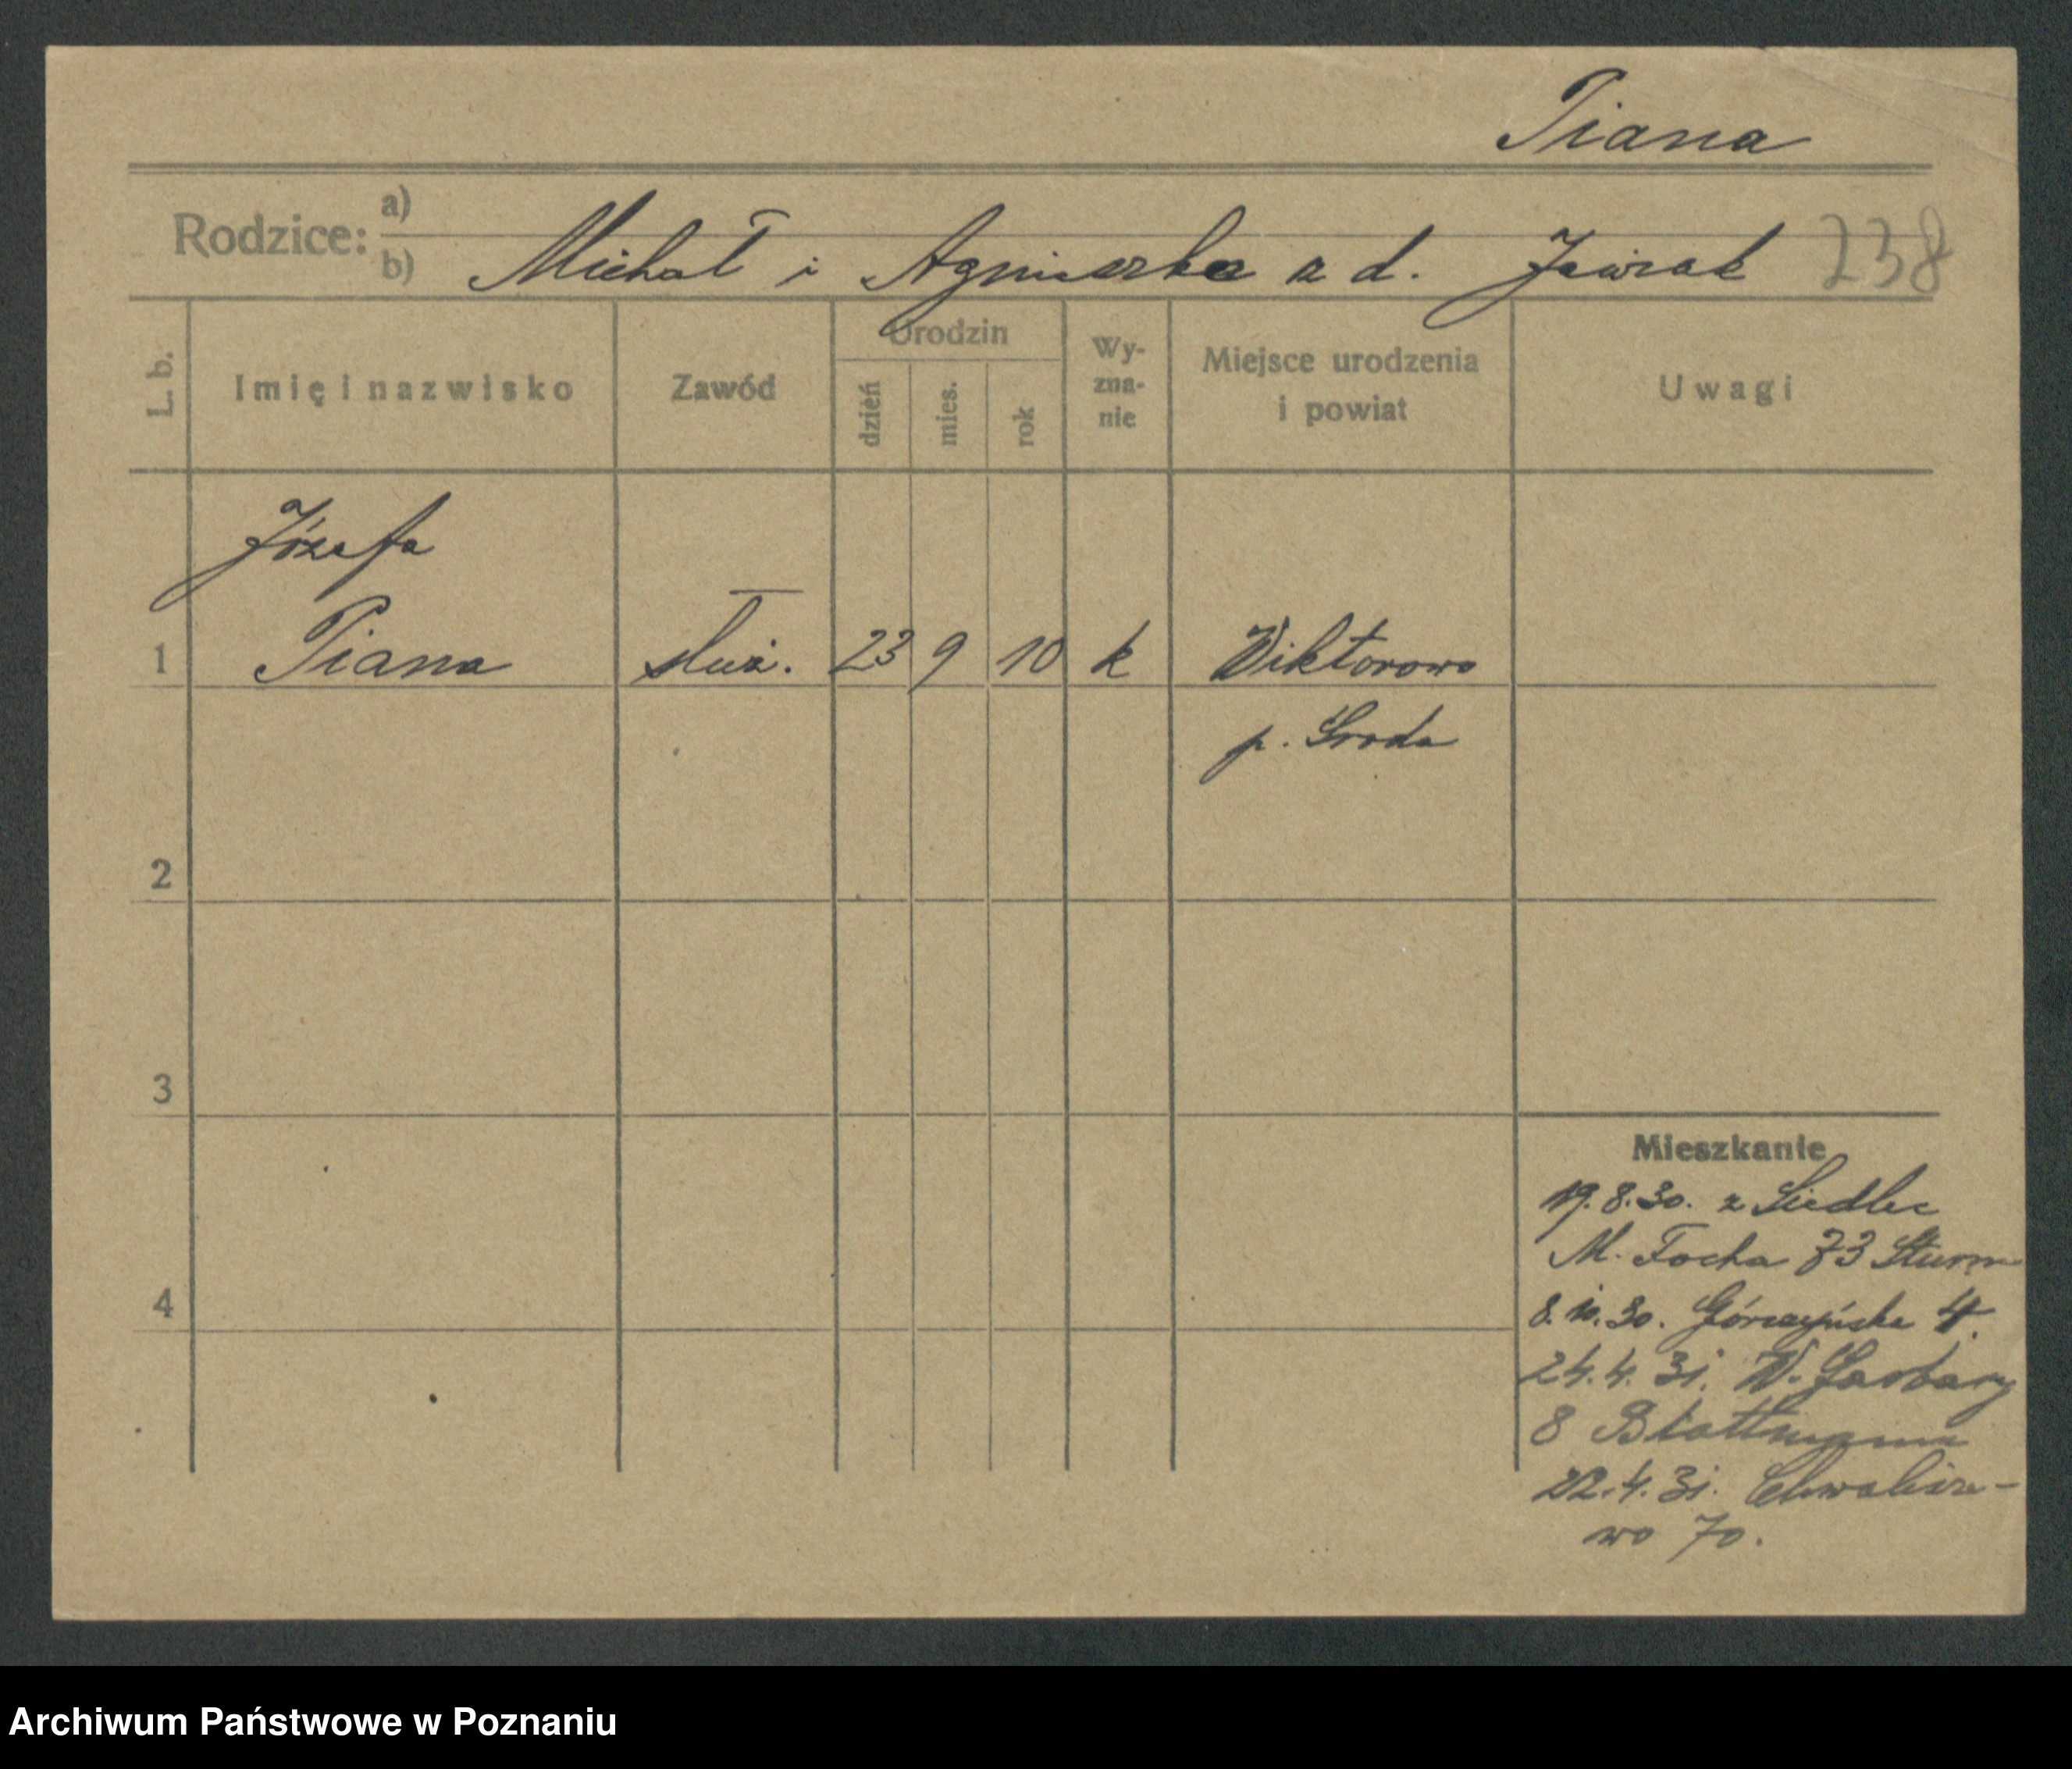 Piana
Rodzice: a)
b) Michał i Agnieszka z d. 238
L. b. Imię i nazwisko Zawód Urodzin dzień mies. rok Wyznanie Miejsce urodzenia i powiat Uwagi
Józefa
1 Piana służ. 23 9 10 k Wiktorowo
p. Środa
2
3
Mieszkanie
19.8.30. z Siedlec
M. Focha 73 Sturm
4
8.10.30. Górczyńska 4.
24.4.31. W. Garbary
8
22.4.31. Chwalisze-
wo 70.
Archiwum Państwowe w Poznaniu